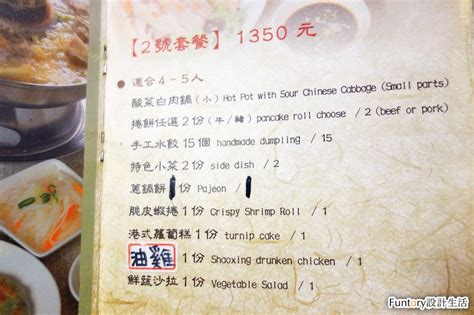 【2號套餐】1350 元
● 適合4-5人
酸菜白肉鍋（小）Hot Pot with Sour Chinese Cabbage (Small parts)
捲餅任選2份（牛/豬）pancake roll choose / 2 (beef or pork)
手工水餃15個 handmade dumpling / 15
特色小菜2份 side dish / 2
蔥鍋餅 份 Pajeon /
脆皮蝦捲1份 Crispy Shrimp Roll / 1
港式蘿蔔糕1份 turnip cake / 1
油雞 1份 Shaoxing drunken chicken / 1
鮮蔬沙拉1份 Vegetable Salad / 1
Funtory設計生活